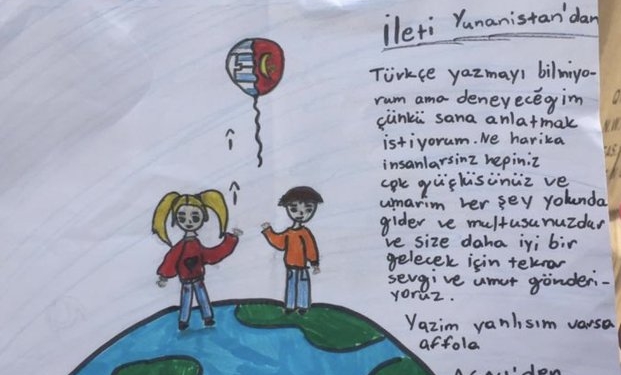 İleti Yunanistan'dan
Türkçe yazmayı bilmiyo-
rum ama deneyeceğim
çünkü sana anlatmak
istiyorum. Ne harika
insanlarsinz hepiniz
çok güçlüsünüz ve
umarim her şey yolunda
gider ve multusunuzdur
ve size daha iyi bir
gelecek için tekrar
sevgi ve umut gönderi-
yoruz.
Yazim yanlısım varsa
affola